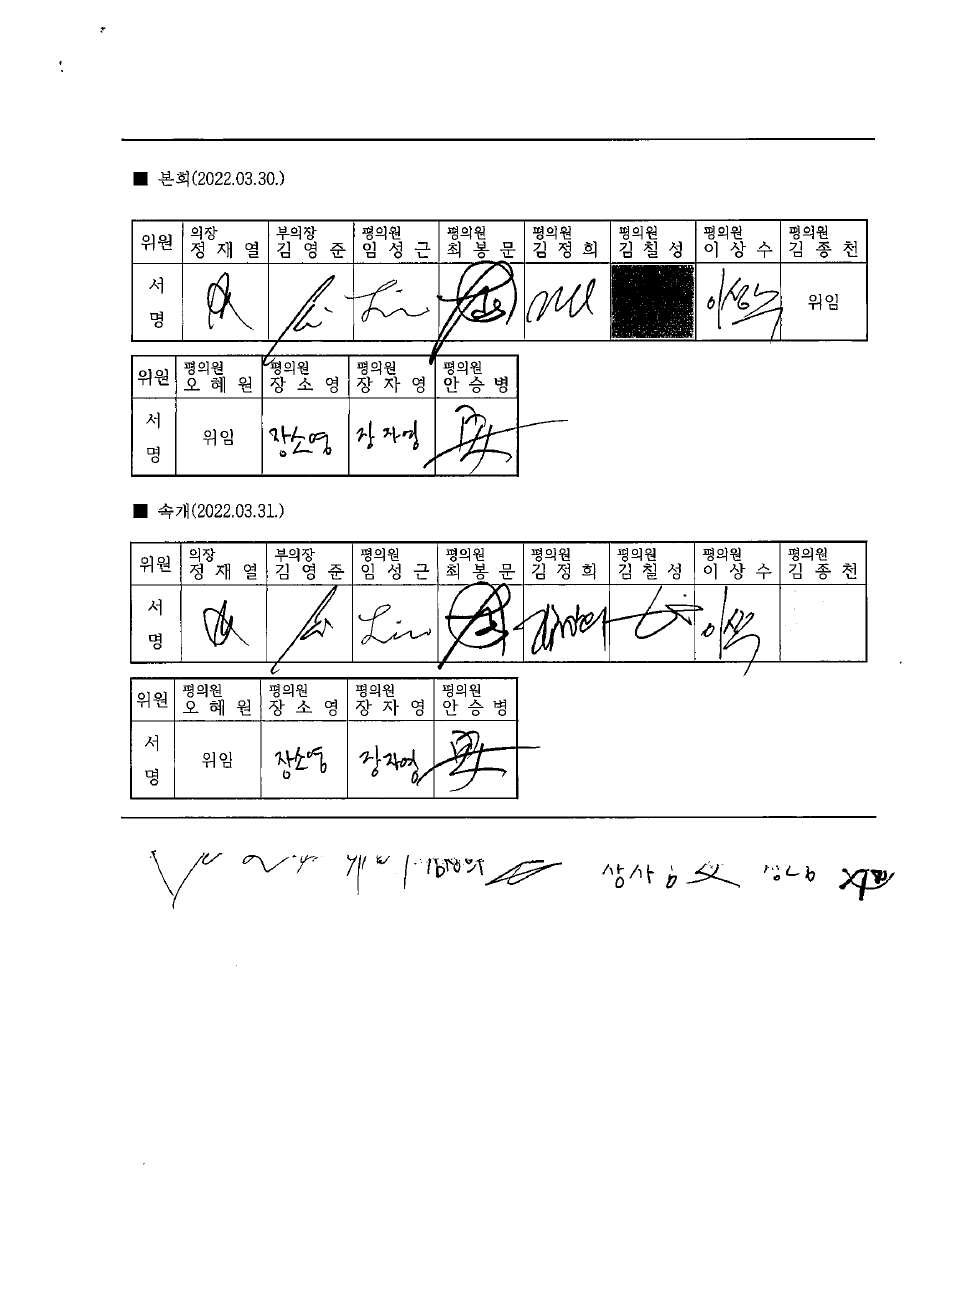 ■ 본회(2022.03.30.)
위원 의장 정재열 부의장 김영준 평의원 임성근 평의원 최봉문 평의원 김정희 평의원 김칠성 평의원 이상수 평의원 김종천
서명 이상수 위임
위원 평의원 오혜원 평의원 장소영 평의원 장자영 평의원 안승병
서명 위임 장소영 장자영
■ 속개(2022.03.31.)
위원 의장 정재열 부의장 김영준 평의원 임성근 평의원 최봉문 평의원 김정희 평의원 김칠성 평의원 이상수 평의원 김종천
서명
위원 평의원 오혜원 평의원 장소영 평의원 장자영 평의원 안승병
서명 위임 장소영 장자영